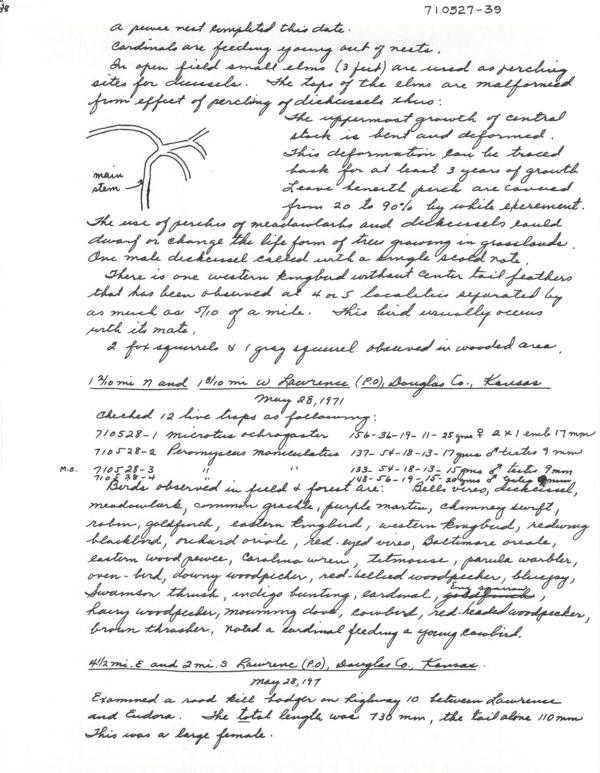 710527-39
A pewee nest completed this date.
Cardinals are feeding young out of nests.
In open field small elms (3 feet) are used as perching
sites for dicissels. The tops of the elms are malformed
from effect of perching of dickcissels thus:
The uppermost growth of central
stock is bent and deformed.
This deformation can be traced
back for at least 3 years of growth
Leave beneath perch are covered
from 20 to 90% by white excrement.
main
stem
The use of perches of meadowlarks and dickcissels could
dwarf or change the life form of trees growing in grasslands.
One male dickcissel called with a single scold note.
There is one western kingbird without center tail feathers
that has been observed at 4 or 5 localities separated by
as much as 5/10 of a mile. This bird usually occurs
with its mate.
2 fox squirrels & 1 gray squirrel observed in wooded area.
1 2/10 mi N and 1 8/10 mi W Lawrence (P.O), Douglas Co., Kansas
May 28, 1971
Checked 12 live traps as following:
710528-1 Microtus ochrogaster 156-36-19-11-25 gms ♀ 2 x 1 emb 17 mm
710528-2 Peromyscus maniculatus 137-54-18-13-17 gms ♂ testes 9 mm
M.O. 710528-3 " " 133-54-18-13-15 gms ♂ testes 7mm
710528-4 148-56-19-15-20 gms ♂ testes mm
Birds observed in field & forest are: Bells vireo, dickcissel,
meadowlark, common grackle, purple martin, chimney swift,
robin, goldfinch, eastern kingbird, western kingbird, redwing
blackbird, orchard oriole, red-eyed vireo, Baltimore oriole,
eastern wood pewee, Carolina wren, titmouse, parula warbler,
oven-bird, downy woodpecker, red-bellied woodpecker, bluejay,
Swainson thrush, indigo bunting, cardinal, goldfinch Eng sparrow,
hairy woodpecker, mourning dove, cowbird, red-headed woodpecker,
brown thrasher, noted a cardinal feeding a young cowbird.
4 1/2 mi. E and 2 mi. S Lawrenc (P.O), Douglas Co., Kansas.
May 28, 197
Examined a road kill badger on highway 10 between Lawrence
and Eudora. The total length was 730 mm, the tail alone 110 mm
This was a large female.